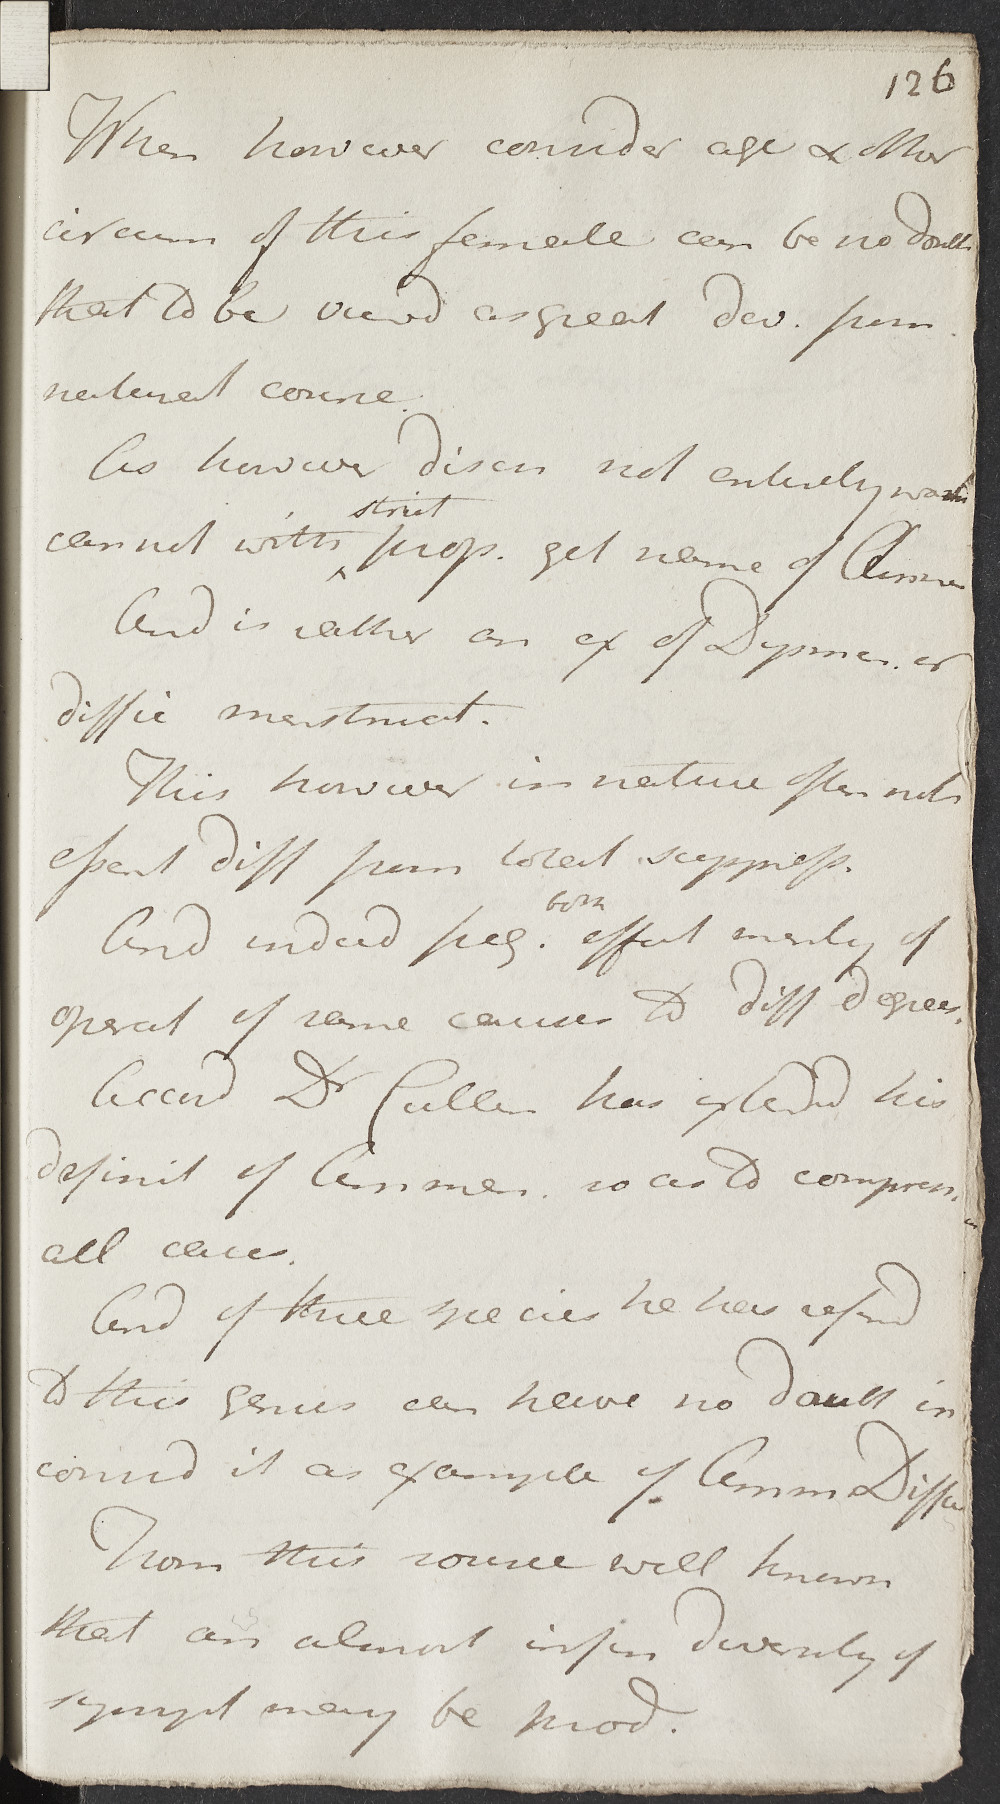 126
When however consider age & other
circum of this female can be no doubt
that to be viewd as great dev. from
natural course.
As however disch not entirely wanti
strict
cannot with prop. get name of Amen
And is rather an ex of Dysmen. or
diffic menstruat.
This however in nature often not
essent diff from total suppress.
both
And indeed freq. effect merely of
operat of same causes to diff degrees.
Accord Dr Cullen has extended his
definit of Amen men. so as to comprehen
all cases.
And of three species he has referd
to this genus can have no doubt in
consid it as example of Amen Diffic
From this source well known
that an almost infin diversity of
sympt may be prod.